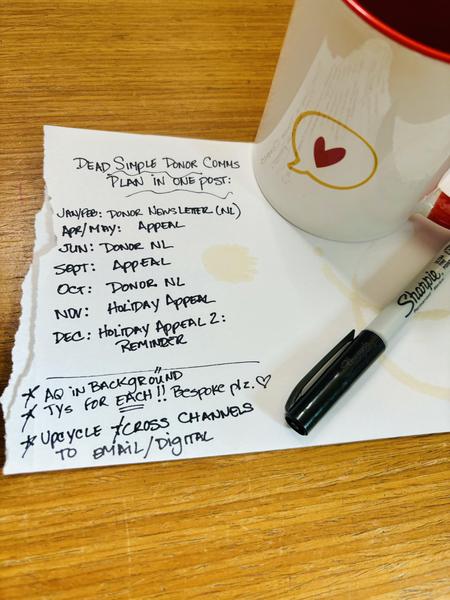 DEAD SIMPLE DONOR COMMS
PLAN IN ONE POST:
JAN/FEB: DONOR NEWSLETTER (NL)
APR/MAY: APPEAL
JUN: DONOR NL
SEPT: APPEAL
OCT: DONOR NL
NOV: HOLIDAY APPEAL
DEC: HOLIDAY APPEAL 2:
REMINDER
* AQ IN BACKGROUND
* TYS FOR EACH!! BESPOKE plz. ♡
* UPCYCLE ACROSS CHANNELS
TO EMAIL/DIGITAL
Sharpie